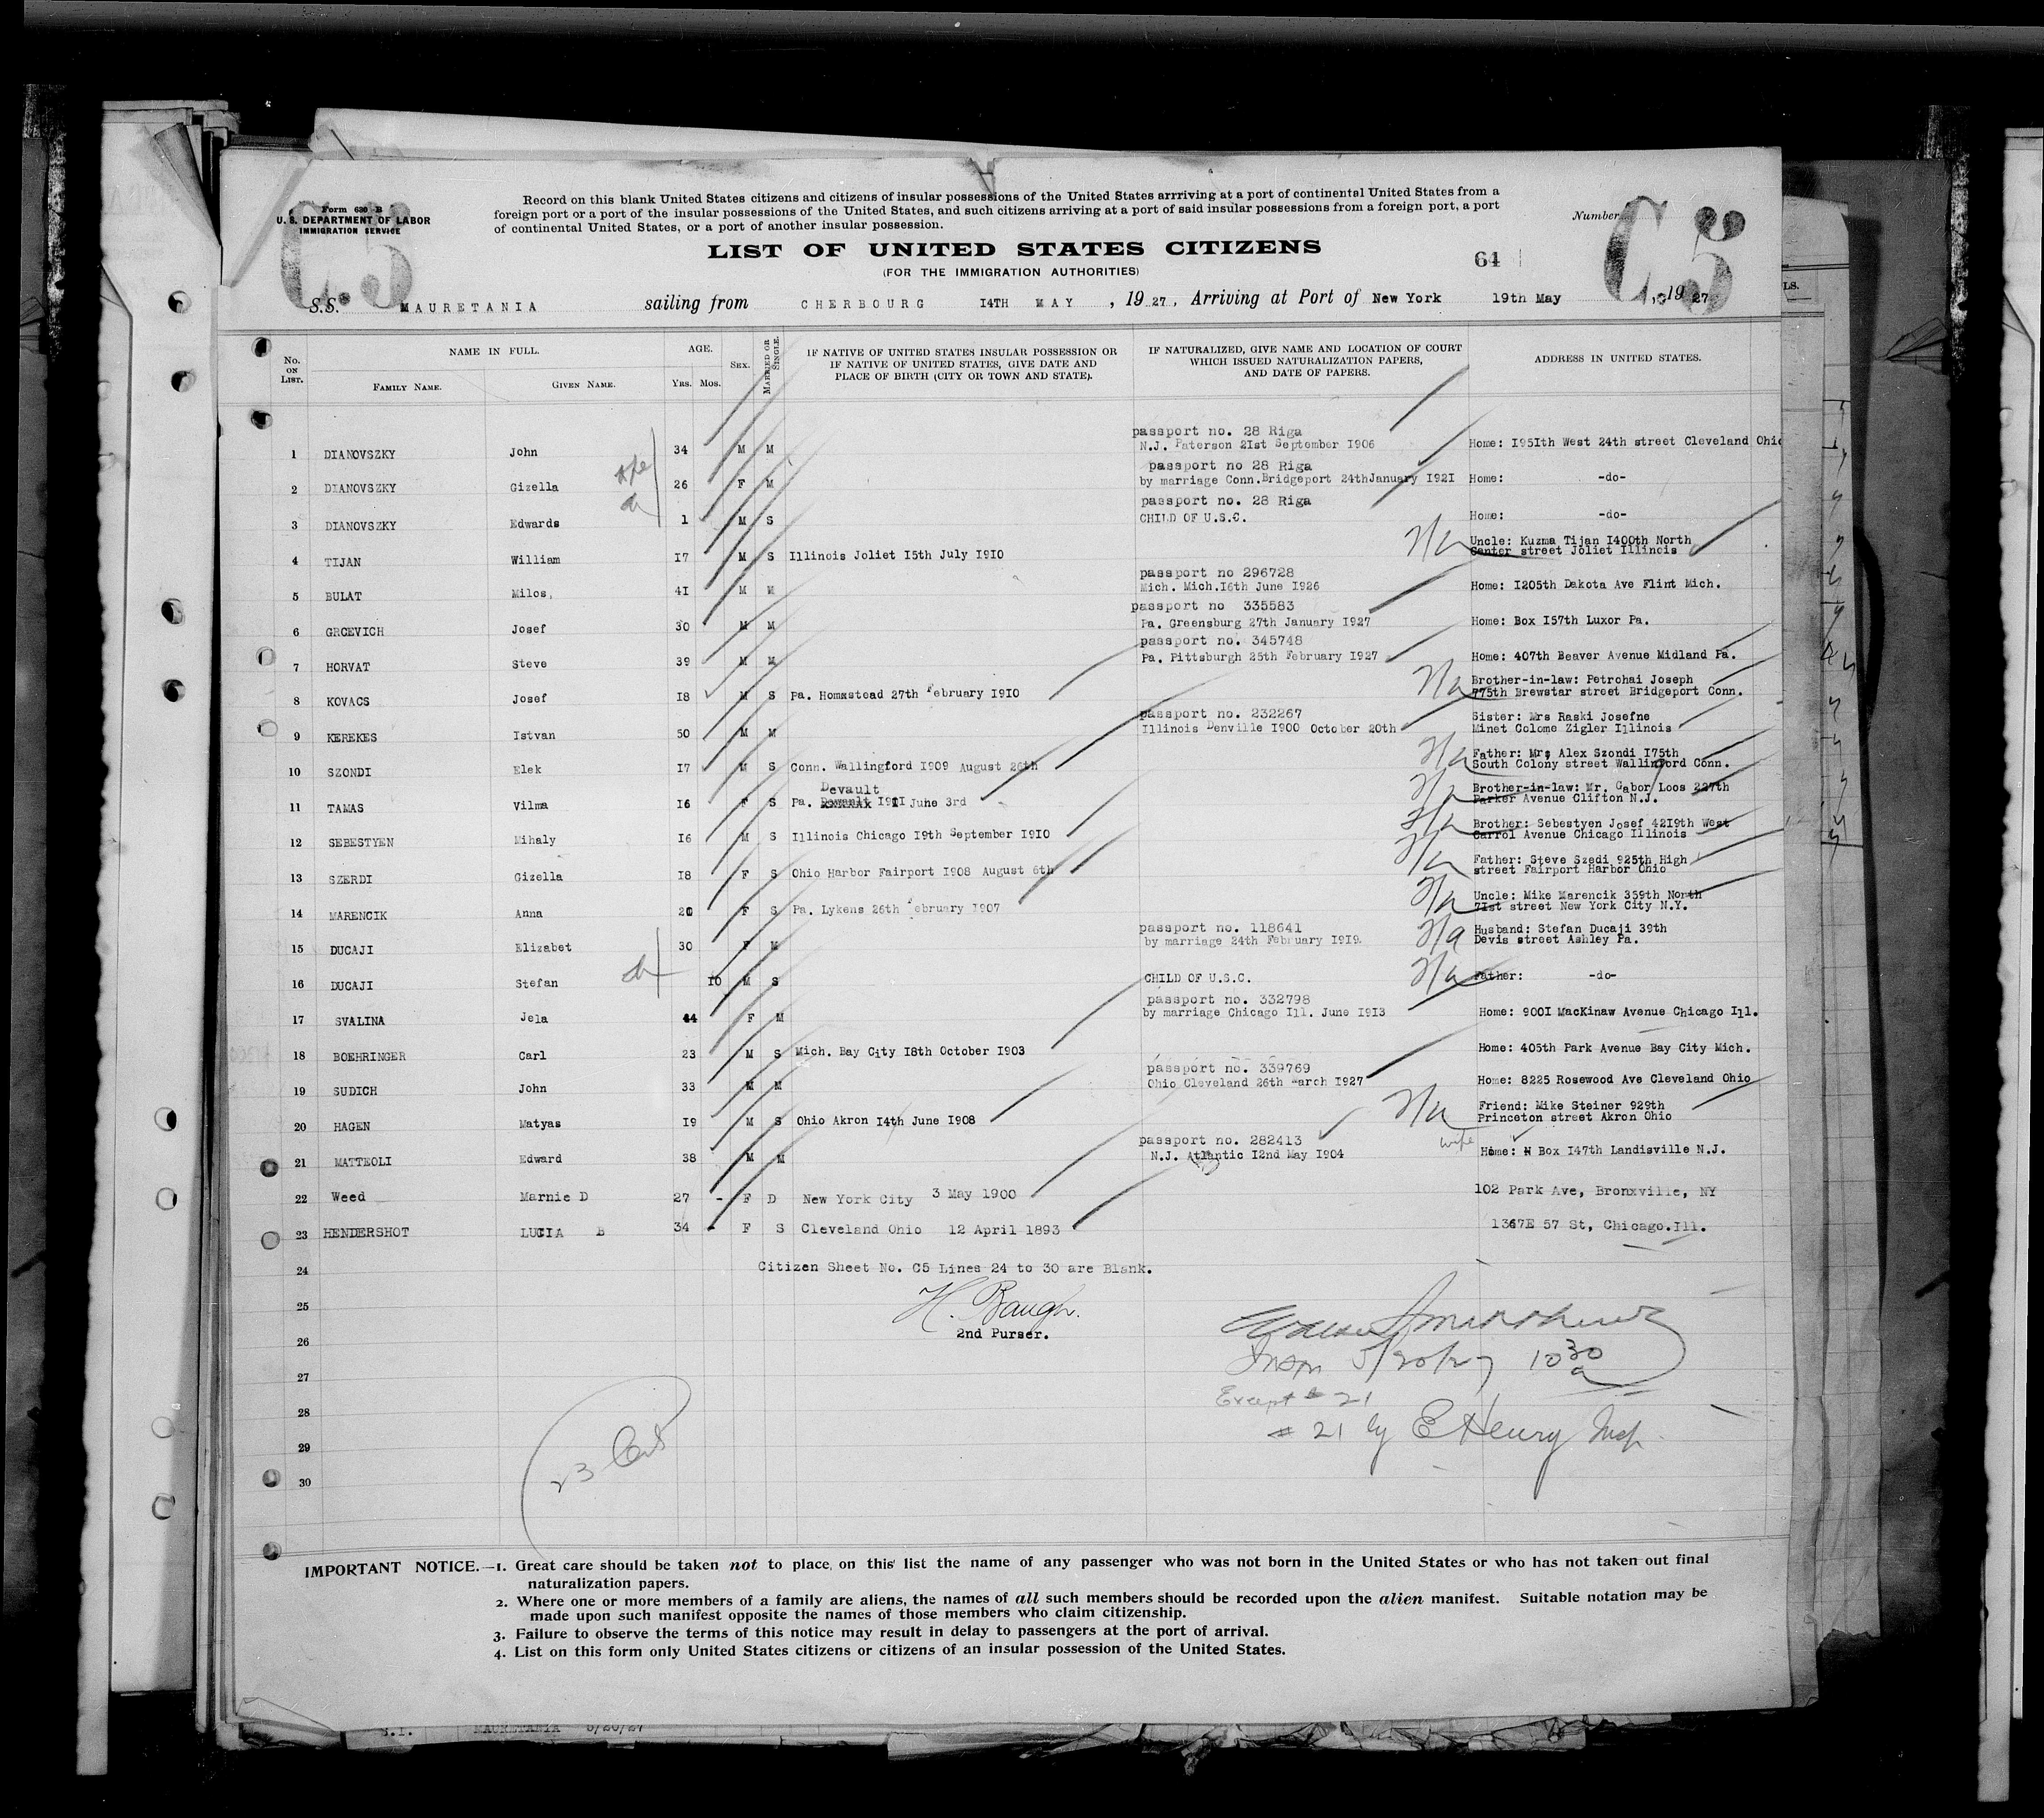 Form 630 B
U. S. DEPARTMENT OF LABOR
IMMIGRATION SERVICE
C5
Record on this blank United States citizens and citizens of insular possessions of the United States arrriving at a port of continental United States from a
foreign port or a port of the insular possessions of the United States, and such citizens arriving at a port of said insular possessions from a foreign port, a port
of continental United States, or a port of another insular possession.
Number
C5
LIST OF UNITED STATES CITIZENS
(FOR THE IMMIGRATION AUTHORITIES)
64
S.S. MAURETANIA sailing from CHERBOURG I4TH MAY , 19 27, Arriving at Port of New York 19th May , 19 27
No. ON LIST. NAME IN FULL. AGE. SEX. MARRIED OR SINGLE. IF NATIVE OF UNITED STATES INSULAR POSSESSION OR IF NATIVE OF UNITED STATES, GIVE DATE AND PLACE OF BIRTH (CITY OR TOWN AND STATE). IF NATURALIZED, GIVE NAME AND LOCATION OF COURT WHICH ISSUED NATURALIZATION PAPERS, AND DATE OF PAPERS. ADDRESS IN UNITED STATES.
FAMILY NAME. GIVEN NAME. YRS. MOS.
passport no. 28 Riga
1 DIANOVSZKY John 34 M M N.J. Paterson 2Ist September I906 Home: I95Ith West 24th street Cleveland Ohio
passport no 28 Riga
2 DIANOVSZKY Gizella 26 F M by marriage Conn.Bridgeport 24thJanuary I92I Home: -do-
passport no. 28 Riga
3 DIANOVSZKY Edwards 1 M S CHILD OF U.S.C. Home: -do-
4 TIJAN William I7 M S Illinois Joliet I5th July I9I0 N/a Uncle: Kuzma Tijan I400th North
Center street Joliet Illinois
passport no 296728
5 BULAT Milos, 4I M M Mich. Mich.I6th June I926 Home: I205th Dakota Ave Flint Mich.
passport no 335583
6 GRCEVICH Josef 30 M M Pa. Greensburg 27th January I927 Home: Box I57th Luxor Pa.
passport no. 345748
7 HORVAT Steve 39 M M Pa. Pittsburgh 25th February I927 Home: 407th Beaver Avenue Midland Pa.
8 KOVACS Josef I8 M S Pa. Homestead 27th February I9I0 N/a Brother-in-law: Petrohai Joseph
775th Brewstar street Bridgeport Conn.
passport no. 232267
9 KEREKES Istvan 50 M M Illinois Denville I900 October 20th Sister: Mrs Raski Josefne
Minet Colome Zigler Illinois
10 SZONDI Elek I7 M S Conn. Wallingford I909 August 26th N/a Father: Mrs Alex Szondi I75th
South Colony street Wallinford Conn.
Devault
11 TAMAS Vilma I6 F S Pa. I9II June 3rd N/a Brother-in-law: Mr. Gabor Loos 227th
Parker Avenue Clifton N.J.
12 SEBESTYEN Mihaly I6 M S Illinois Chicago I9th September I9I0 N/a Brother: Sebestyen Josef 42I9th West
Carrol Avenue Chicago Illinois
13 SZERDI Gizella I8 F S Ohio Harbor Fairport I908 August 6th N/a Father: Steve Szedi 925th High
street Fairport Harbor Ohio
14 MARENCIK Anna 20 F S Pa. Lykens 26th February I907 N/a Uncle: Mike Marencik 359th North
7Ist street New York City N.Y.
passport no. 118641
15 DUCAJI Elizabet 30 F M by marriage 24th February I9I9. N/a Husband: Stefan Ducaji 39th
Devis street Ashley Pa.
16 DUCAJI Stefan I0 M S CHILD OF U.S.C. N/a Father: -do-
passport no. 332798
17 SVALINA Jela 44 F M by marriage Chicago Ill. June I9I3 Home: 900I MacKinaw Avenue Chicago Ill.
18 BOEHRINGER Carl 23 M S Mich. Bay City I8th October I903 Home: 405th Park Avenue Bay City Mich.
passport no. 339769
19 SUDICH John 33 M M Ohio Cleveland 26th March I927 Home: 8225 Rosewood Ave Cleveland Ohio
20 HAGEN Matyas I9 M S Ohio Akron I4th June I908 N/a Friend: Mike Steiner 929th
Princeton street Akron Ohio
passport no. 282413 wife
21 MATTEOLI Edward 38 M M N.J. Atlantic I2nd May I904 Home: N Box I47th Landisville N.J.
22 Weed Marnie D 27 - F D New York City 3 May 1900 102 Park Ave, Bronxville, NY
23 HENDERSHOT LUCIA B 34 - F S Cleveland Ohio 12 April 1893 1367E 57 St, Chicago.Ill.
24 Citizen Sheet No. C5 Lines 24 to 30 are Blank.
25 H. Baugh.
26 2nd Purser.
27 Insp 5/20/27 10 30 a
28 Except # 21
# 21 by E Henry Insp.
29 23 Cert
30
IMPORTANT NOTICE.—1. Great care should be taken not to place on this list the name of any passenger who was not born in the United States or who has not taken out final
naturalization papers.
2. Where one or more members of a family are aliens, the names of all such members should be recorded upon the alien manifest. Suitable notation may be
made upon such manifest opposite the names of those members who claim citizenship.
3. Failure to observe the terms of this notice may result in delay to passengers at the port of arrival.
4. List on this form only United States citizens or citizens of an insular possession of the United States.
S.I. MAURETANIA 5/20/27